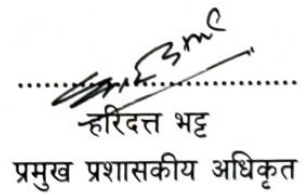 हरिदत्त भट्ट
प्रमुख प्रशासकीय अधिकृत